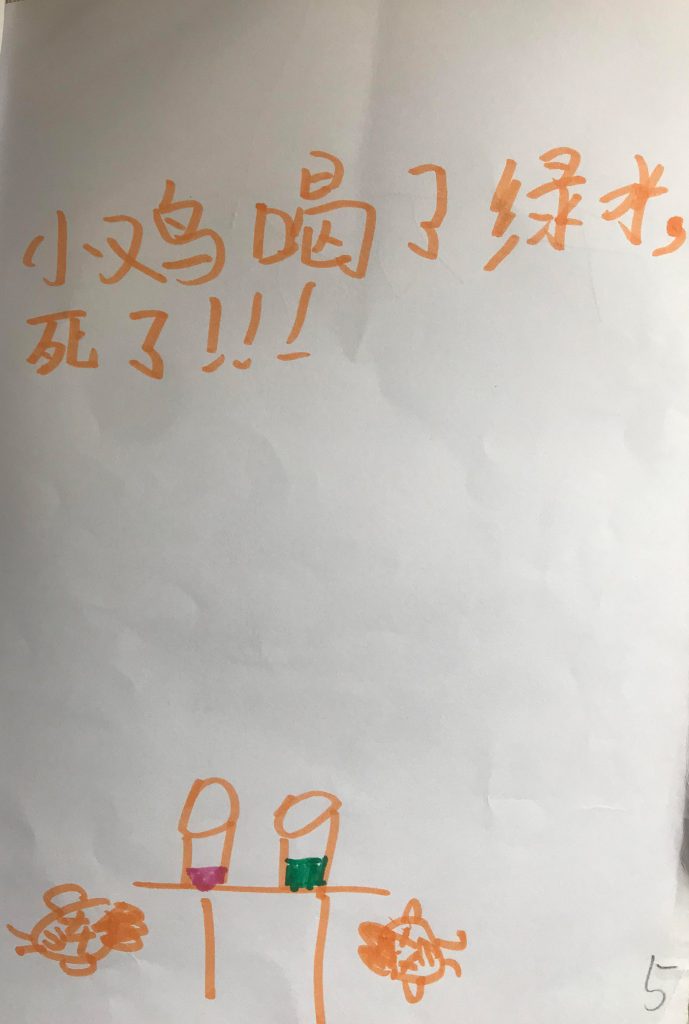 小鸡喝了绿水,
死了!!!
5